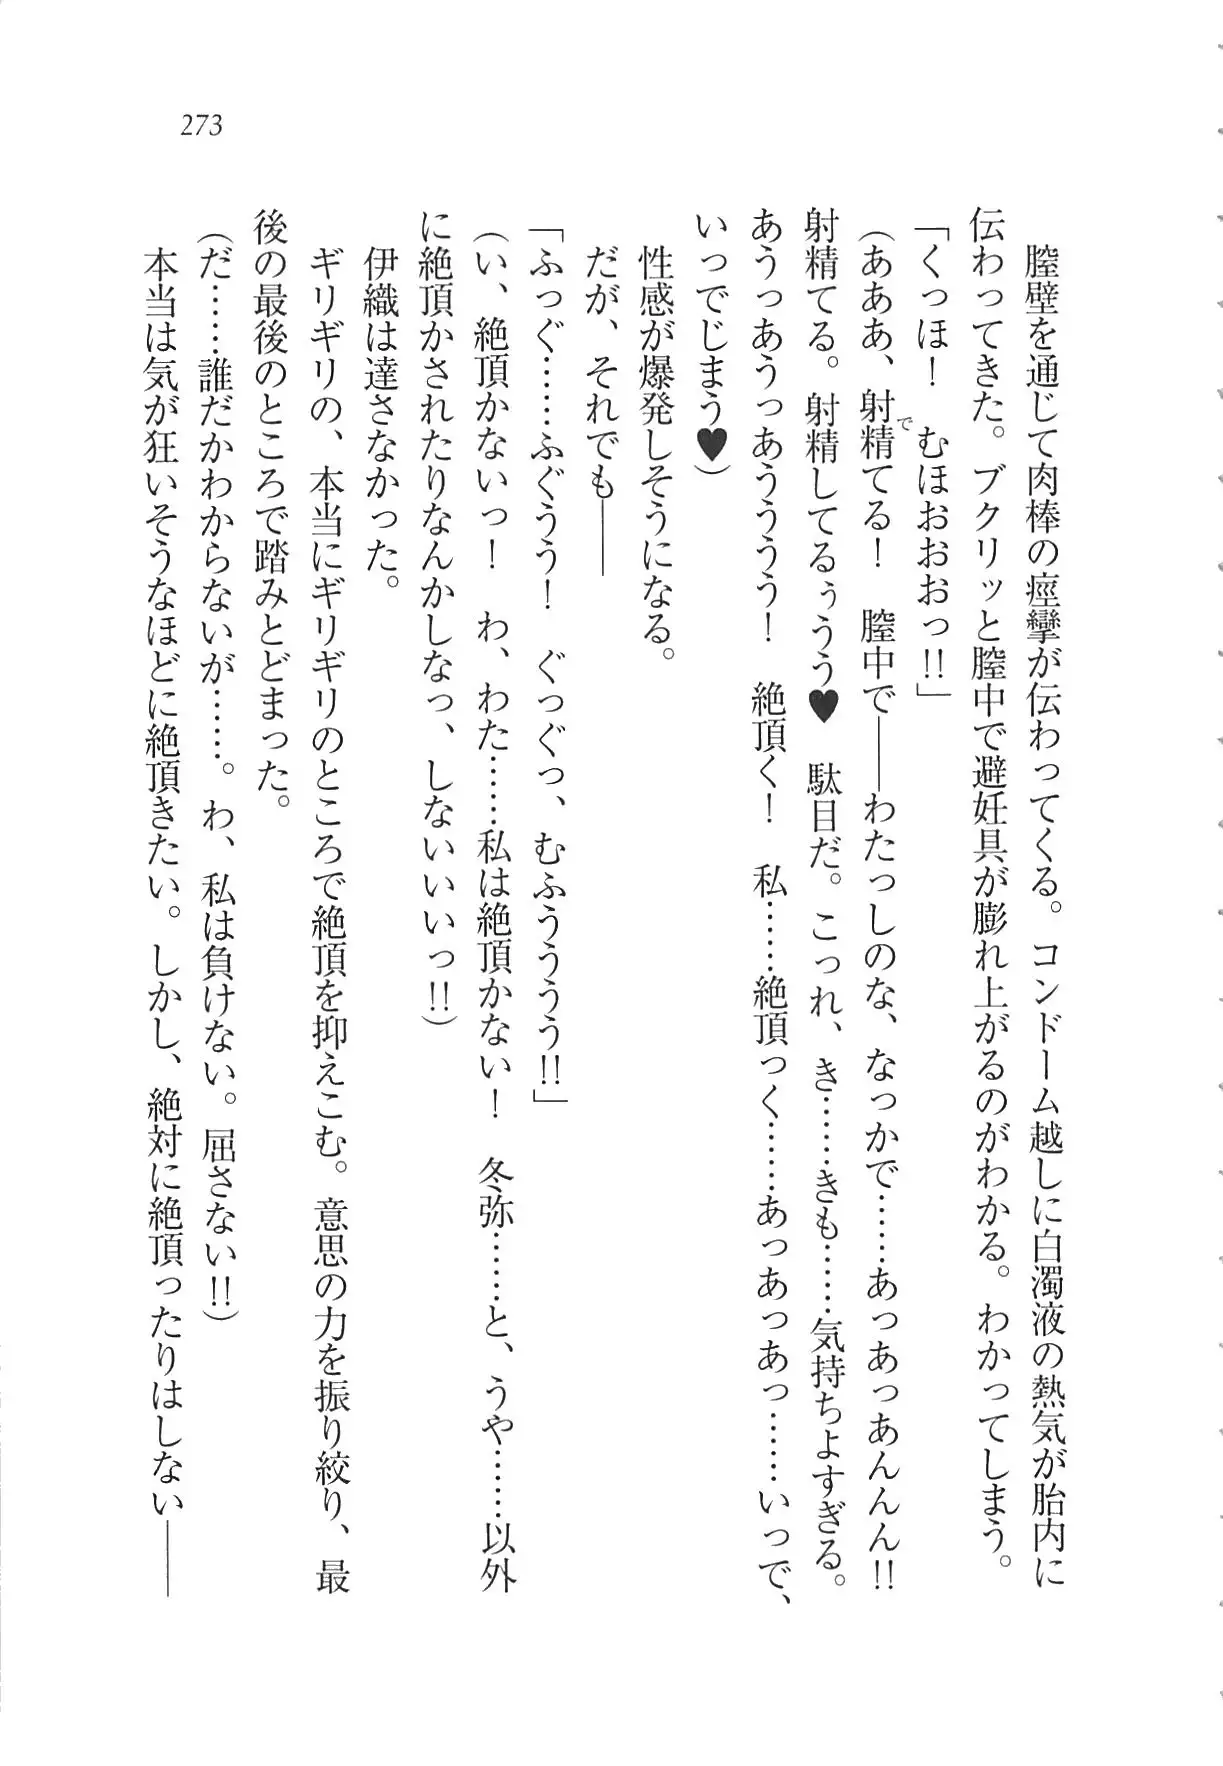 273
膣壁を通じて肉棒の痙攣が伝わってくる。コンドーム越しに白濁液の熱気が胎内に
伝わってきた。ブクリッと膣中で避妊具が膨れ上がるのがわかる。わかってしまう。
「くっほ！　むほおおおっ!!」
（あああ、射精てる！　膣中で――わたっしのな、なっかで……あっあっあんんん!!
で
射精てる。射精してるぅうう♥　駄目だ。こっれ、き……きも……気持ちよすぎる。
あうっあうっあうううう！　絶頂く！　私……絶頂っく……あっあっあっ……いっで、
いっでじまう♥）
性感が爆発しそうになる。
だが、それでも――
「ふっぐ……ふぐうう！　ぐっぐっ、むふうううう!!」
（い、絶頂かないっ！　わ、わた……私は絶頂かない！　冬弥……と、うや……以外
に絶頂かされたりなんかしなっ、しないいいっ!!）
伊織は達さなかった。
ギリギリの、本当にギリギリのところで絶頂を抑えこむ。意思の力を振り絞り、最
後の最後のところで踏みとどまった。
（だ……誰だかわからないが……。わ、私は負けない。屈さない!!）
本当は気が狂いそうなほどに絶頂きたい。しかし、絶対に絶頂ったりはしない――